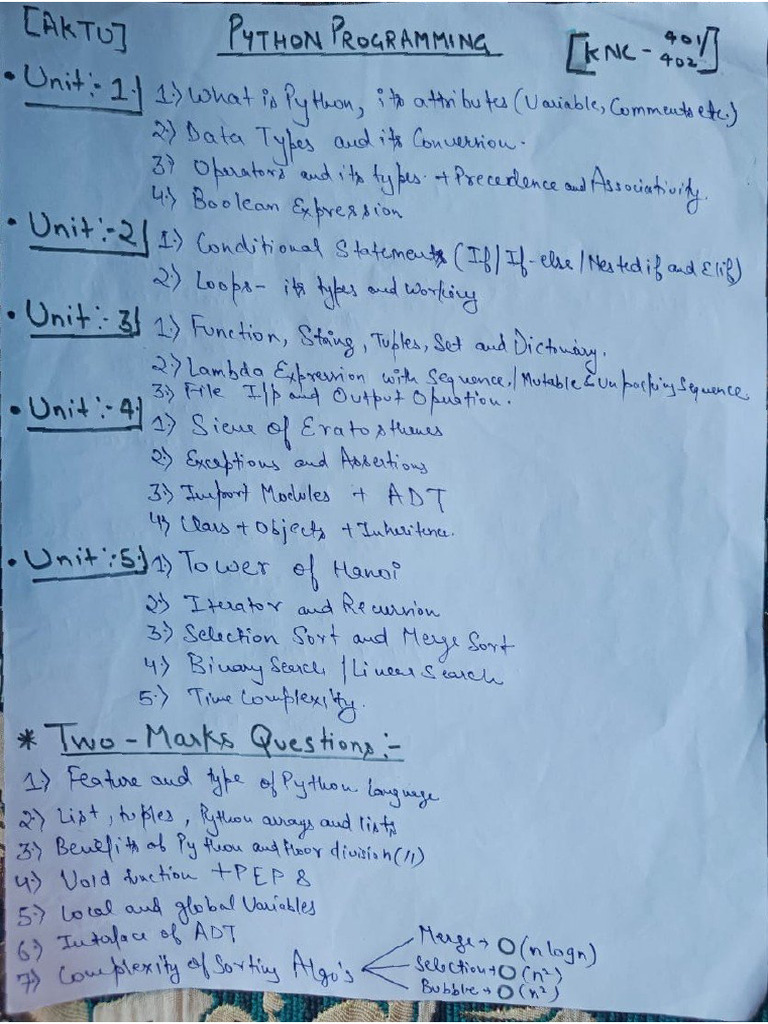 [AKTU] PYTHON PROGRAMMING [KNC - 401/402]
• Unit:- 1.) 1.) What is Python, its attributes (Variable, Comments etc.)
2.) Data Types and its Conversion.
3.) Operators and its types. + Precedence and Associativity.
4.) Boolean Expression
• Unit:- 2) 1.) Conditional Statements (If / If-else / Nested if and Elif)
2.) Loops - its types and working
• Unit:- 3) 1.) Function, String, Tuples, Set and Dictionary.
2.) Lambda Expression with Sequence. / Mutable & Unpacking Sequence
3.) File I/p and Output Operation.
• Unit:- 4.) 1.) Sieve of Eratosthenes
2.) Exceptions and Assertions
3.) Import Modules + ADT
4.) Class + Objects + Inheritence.
• Unit:- 5.) 1.) Tower of Hanoi
2.) Iterator and Recursion
3.) Selection Sort and Merge Sort
4.) Binary Search / Linear Search
5.) Time Complexity.
* Two-Marks Questions:-
1.) Feature and type of Python Language
2.) List, tuples, Python arrays and lists
3.) Benefits of Python and Floor division(//)
4.) Void function + PEP 8
5.) Local and global Variables
6.) Interface of ADT
7.) Complexity of Sorting Algo's
Merge → O(n logn)
Selection → O(n²)
Bubble → O(n²)